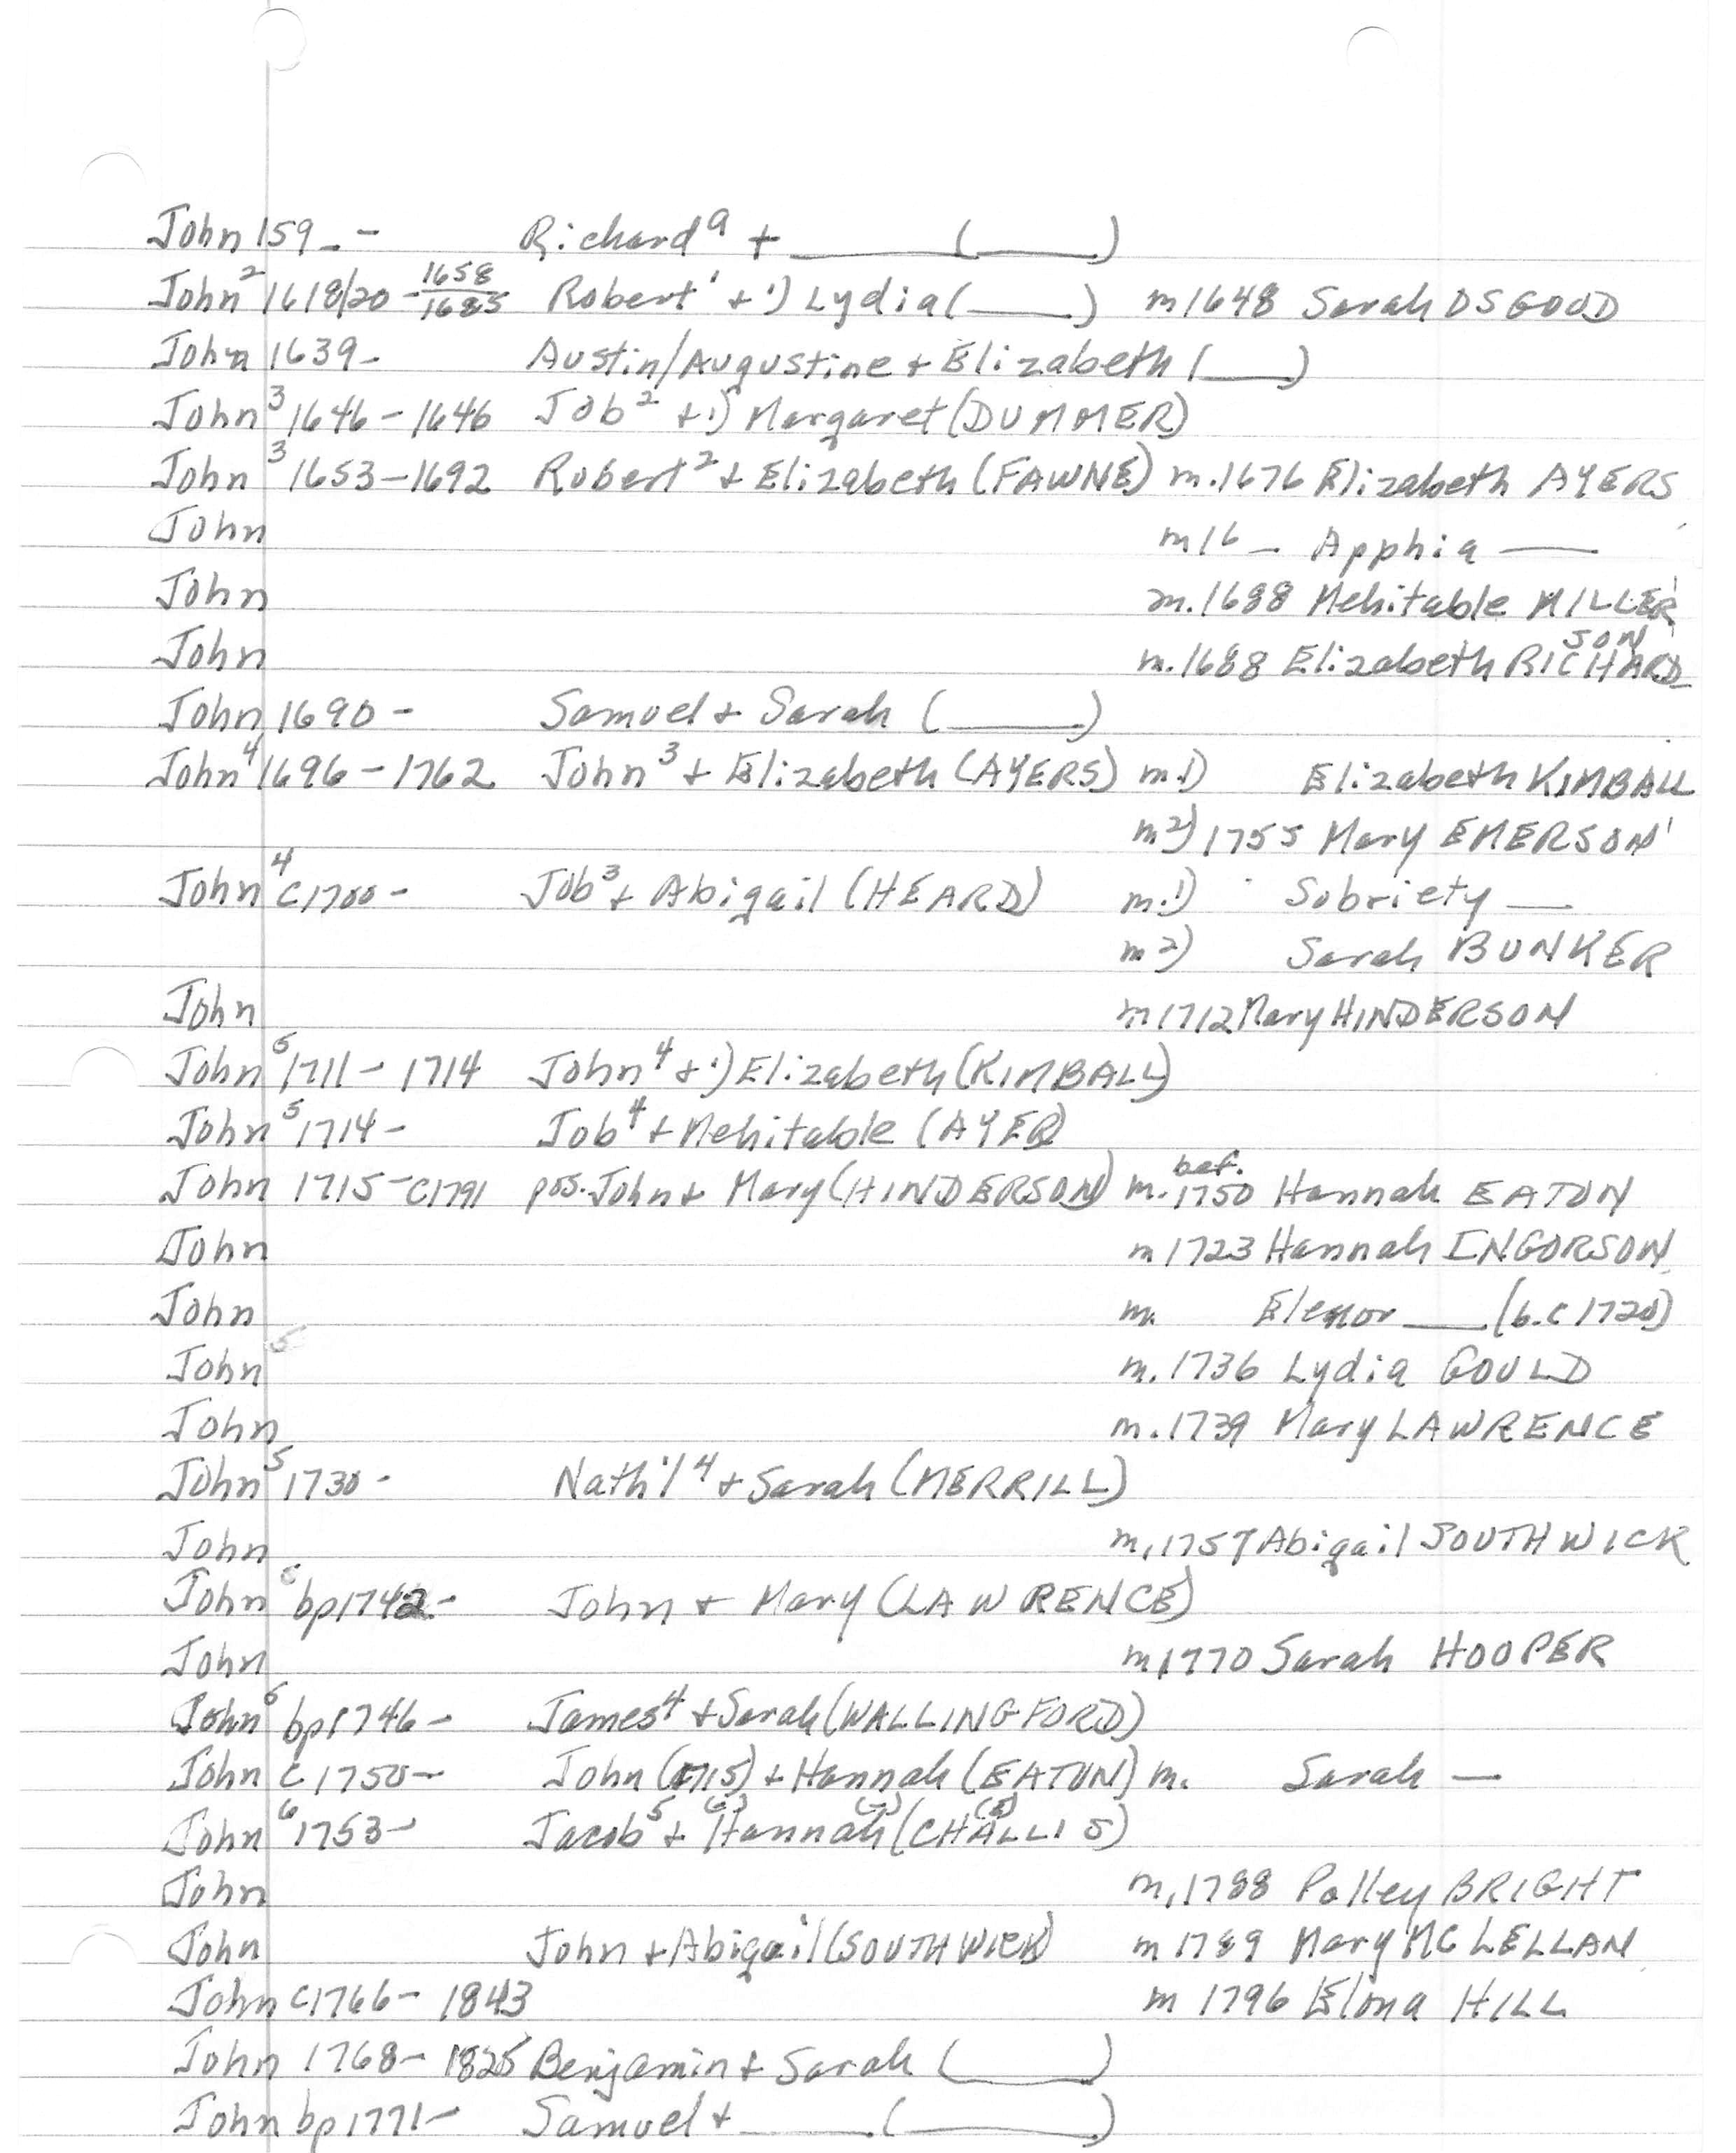 John 159_ - Richard^a + ____ (____)
John^2 1618/20 - 1658/1685 Robert^1 + 1) Lydia (____) m 1648 Sarah OSGOOD
John 1639- Austin/Augustine + Elizabeth (___)
John^3 1646-1646 Job^2 + 1) Margaret (DUMMER)
John^3 1653-1692 Robert^2 + Elizabeth (FAWNE) m. 1676 Elizabeth AYERS
John m 16 _ Apphia ___
John m. 1688 Mehitable MILLER
John m. 1688 Elizabeth RICHARDSON
John 1690 - Samuel + Sarah (____)
John^4 1696-1762 John^3 + Elizabeth (AYERS) m 1) Elizabeth KIMBALL
m 2) 1755 Mary EMERSON
John^4 c1700 - Job^3 + Abigail (HEARD) m. 1) Sobriety ___
m 2) Sarah BUNKER
John m 1712 Mary HINDERSON
John^5 1711-1714 John^4 + 1) Elizabeth (KIMBALL)
John^5 1714- Job^4 + Mehitable (AYER)
John 1715-c1791 pos. John + Mary (HINDERSON) m. bef. 1750 Hannah EATON
John m 1723 Hannah INGORSON
John m. Elenor ___ (b.c 1720)
John^5 m. 1736 Lydia GOULD
John m. 1739 Mary LAWRENCE
John^5 1730 - Nath'l^4 + Sarah (MERRILL)
John m. 1757 Abigail SOUTHWICK
John^6 bp1742- John + Mary (LAWRENCE)
John m 1770 Sarah HOOPER
John^6 bp1746- James^4 + Sarah (WALLINGFORD)
John c 1750- John (1715) + Hannah (EATON) m. Sarah —
John^6 1753- Jacob^5 + Hannah (CHALLIS)
John m. 1788 Polley BRIGHT
John John + Abigail (SOUTHWICK) m 1789 Mary MCLELLAN
John c1766-1843 m 1796 Elona HILL
John 1768-1825 Benjamin + Sarah (____)
John bp1771- Samuel + ____ (____)